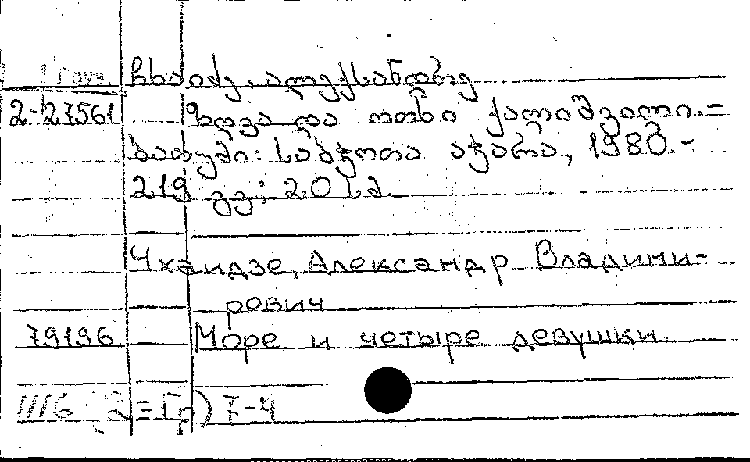 ჩხაიძე, ალექსანდრე
2-27561 ზღვა და ოთხი ქალიშვილი.-
ბათუმი: საბჭოთა აჭარა, 1980.-
219 გვ; 20 სმ.
Чхаидзе, Александр Владими-
рович
79196 Море и четыре девушки.
7-4